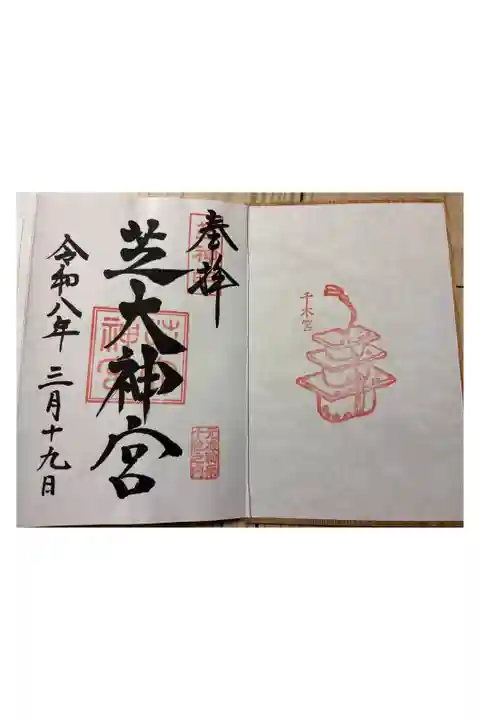 奉拝
芝大神宮
令和八年 三月十九日
千木筥